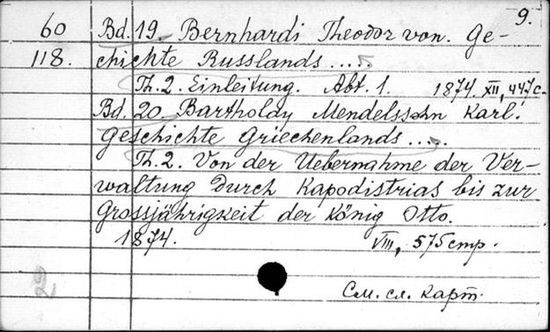 9.
60 Bd. 19. Bernhardi Theodor von. Ge-
118. chichte Russlands .....
Th. 2. Einleitung. Abt. 1. 1874. XII, 447 c.
Bd. 20. Bartholdy Mendelssohn Karl.
Geschichte Griechenlands .....
Th. 2. Von der Uebernahme der Ver-
waltung durch Kapodistrias bis zur
Grossjährigkeit der König Otto.
1874. VIII, 575 стр.
2
См. сл. карт.